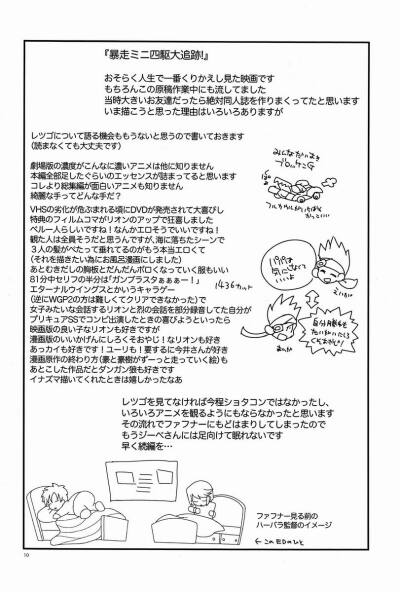 『暴走ミニ四駆大追跡!』
おそらく人生で一番くりかえし見た映画です
もちろんこの原稿作業中にも流してました
当時大きいお友達だったら絶対同人誌を作りまくってたと思います
いま描こうと思った理由はいろいろありますが
レツゴについて語る機会ももうないと思うので書いておきます
(読まなくても大丈夫です)
劇場版の濃度がこんなに濃いアニメは他に知りません
本編全部足したぐらいのエッセンスが詰まってると思います
コレより総集編が面白いアニメも知りません
綺麗な手ってどんな手だ?
VHSの劣化が危ぶまれる頃にDVDが発売されて大喜びし
特典のフィルムコマがリオンのアップで狂喜しました
ペルー人らしいですね!なんかエロそうでいいですね!
観た人は全員そうだと思うんですが、海に落ちたシーンで
3人の髪がぺたって垂れてるのがもう本当エロくて
(それを描きたい為にお風呂漫画にしました)
あとむきだしの胸板とだんだんボロくなっていく服もいい
81分中セリフの半分は「ガンブラスタぁぁぁー!」
エターナルウイングスとかいうキャラゲー
(逆にWGP2の方は難しくてクリアできなかった)で
女子みたいな会話するリオンと烈の会話を部分録音してた自分が
プリキュアSSでコンビ出演したときの喜びようといったら
映画版の良い子なリオンも好きですが
漫画版のいいかげんにしろくそおやじ!なリオンも好き
あっカイも好きです!ユーリも!要するに今井さんが好き
漫画原作の終わり方(豪と豪樹がずーっと走っていく絵)も
あとこした作品だとダンガン狼も好きです
イナズマ描いてくれたときは嬉しかったなあ
レツゴを見てなければ今程ショタコンではなかったし、
いろいろアニメを観るようにもならなかったと思います
その流れでファフナーにもどはまりしてしまったので
もうジーベさんには足向けて眠れないです
早く続編を…
ファフナー見る前の
ハーバラ監督のイメージ
←このEDのひと
10